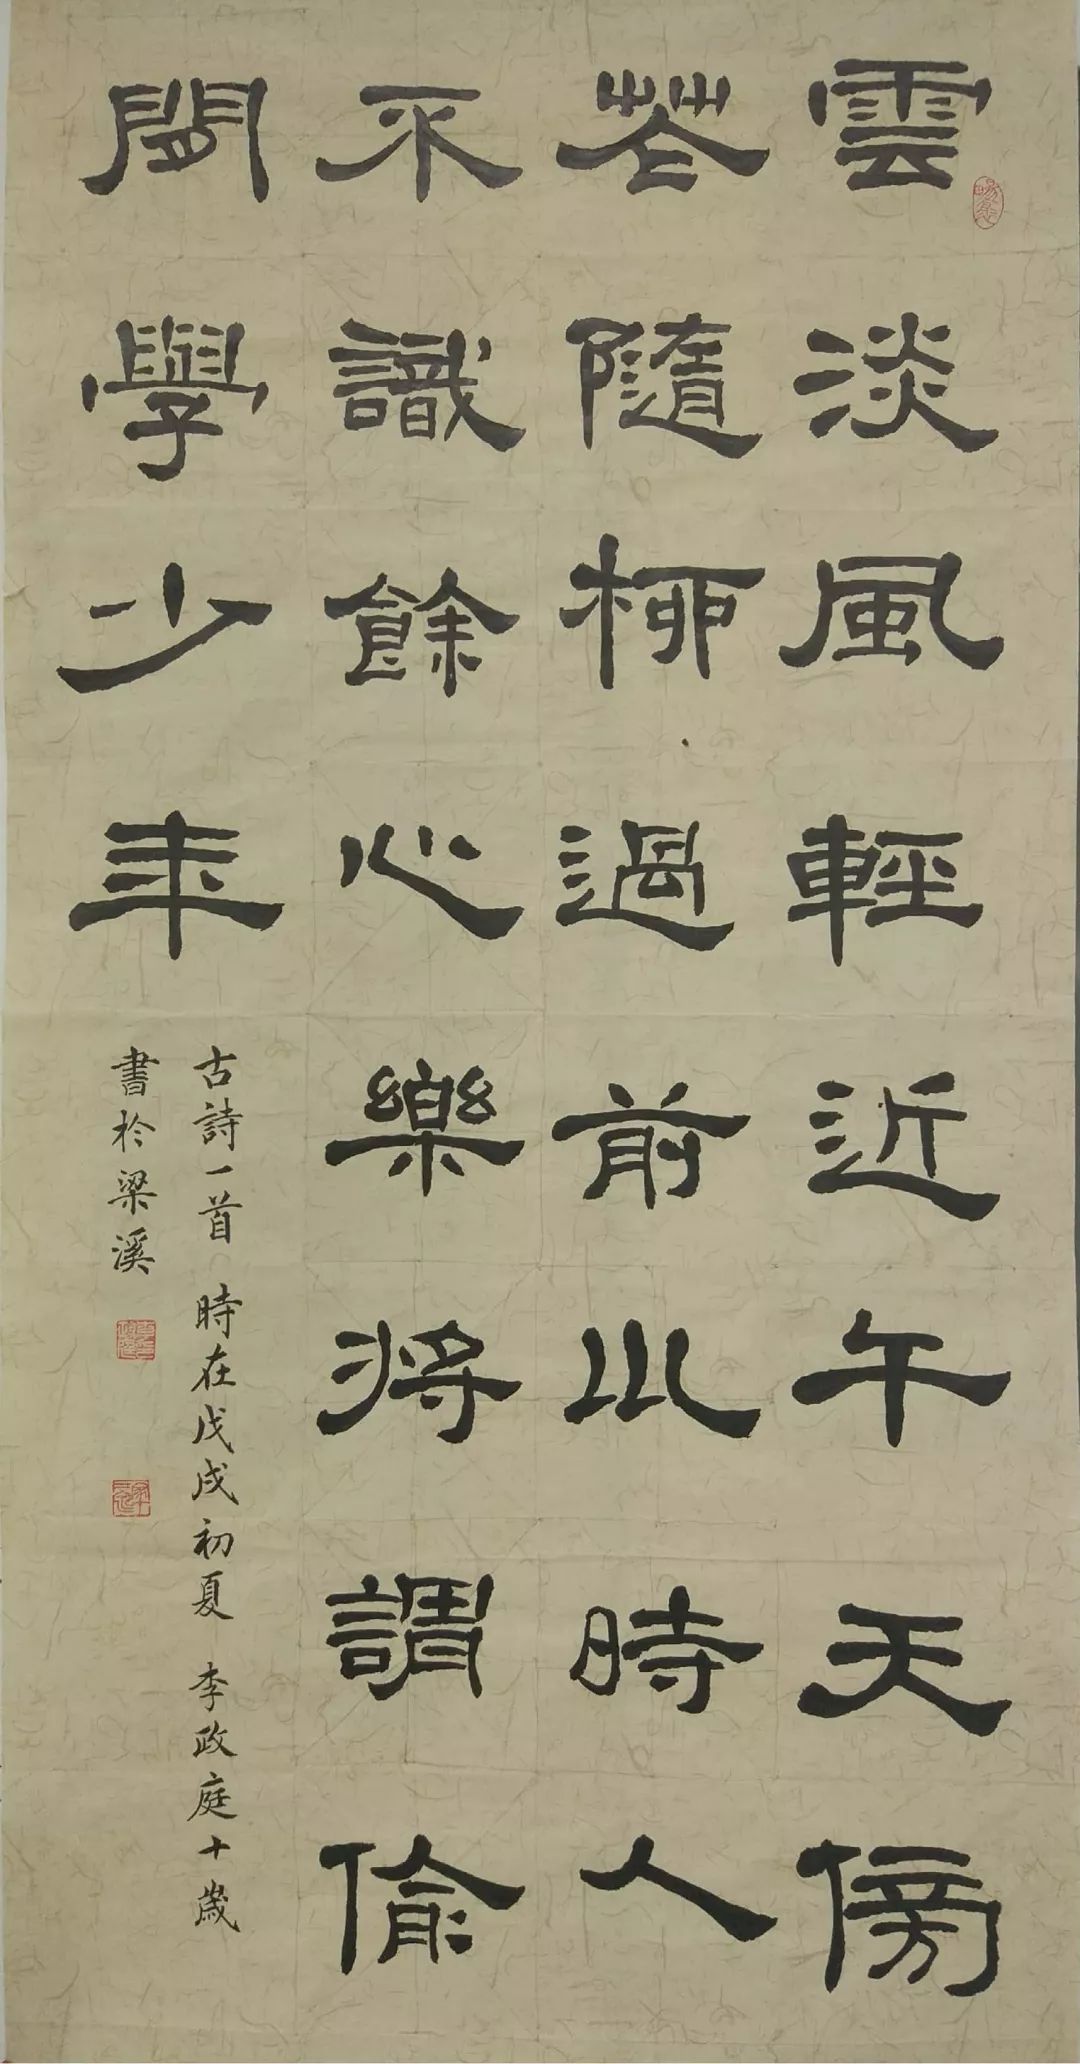 雲淡風輕近午天傍
花隨柳過前川時人
不識餘心樂將謂偷
閒學少年
古詩一首 時在戊戌初夏 李政庭十歲
書於梁溪